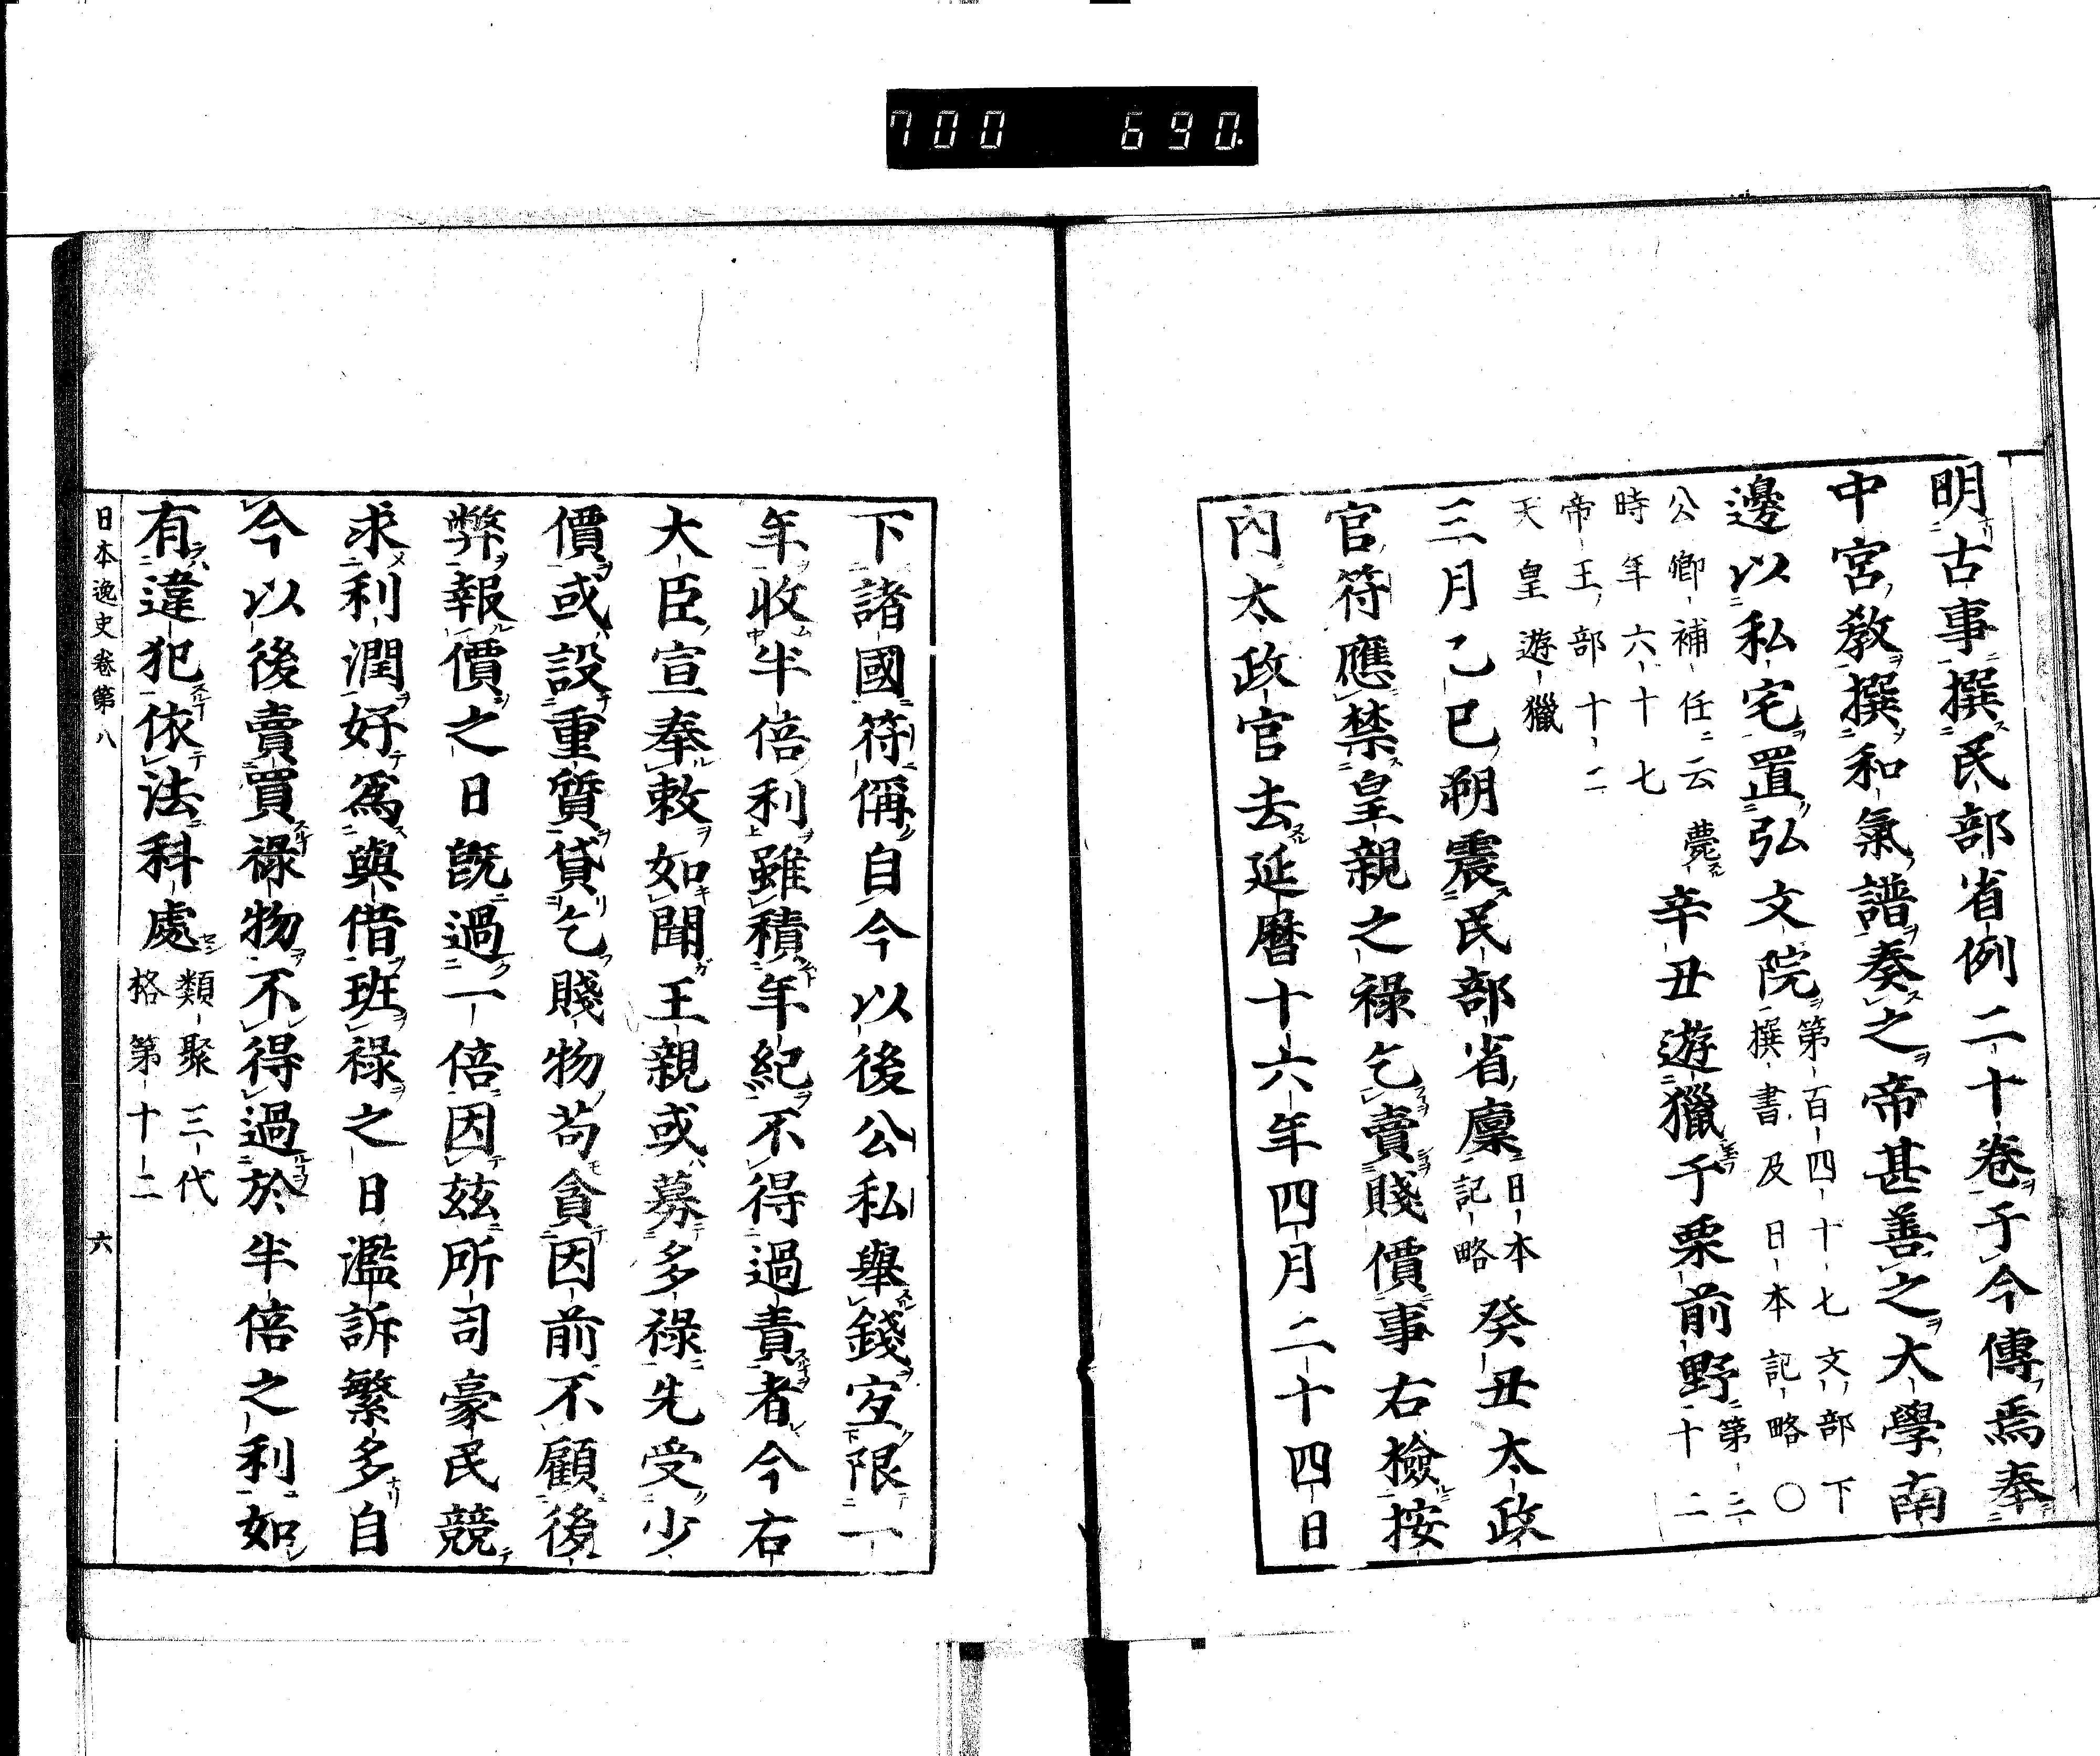 700 690.
明古事撰民部省例二十卷于今傳焉奉
中宮教撰和氣譜奏之帝甚善之大學南
邊以私宅置弘文院第百四十七文部下撰書及日本記略〇
公卿補任云薨時年六十七辛丑遊獵于栗前野第三十二
帝王部十二天皇遊獵
三月乙巳朔震民部省廩日本記略癸丑太政
官符應禁皇親之祿乞賣賤價事右檢按
內太政官去延曆十六年四月二十四日
下諸國符偁自今以後公私舉錢宜限一
年收半倍利雖積年紀不得過責者今右
大臣宣奉敕如聞王親或募多祿先受少
價或設重質貸乞賤物苟貪因前不顧後
弊報價之日旣過一倍因玆所司豪民競
求利潤好爲與借班祿之日濫訴繁多自
今以後賣買祿物不得過於半倍之利如
有違犯依法科處類聚三代格第十二
日本逸史卷第八 六